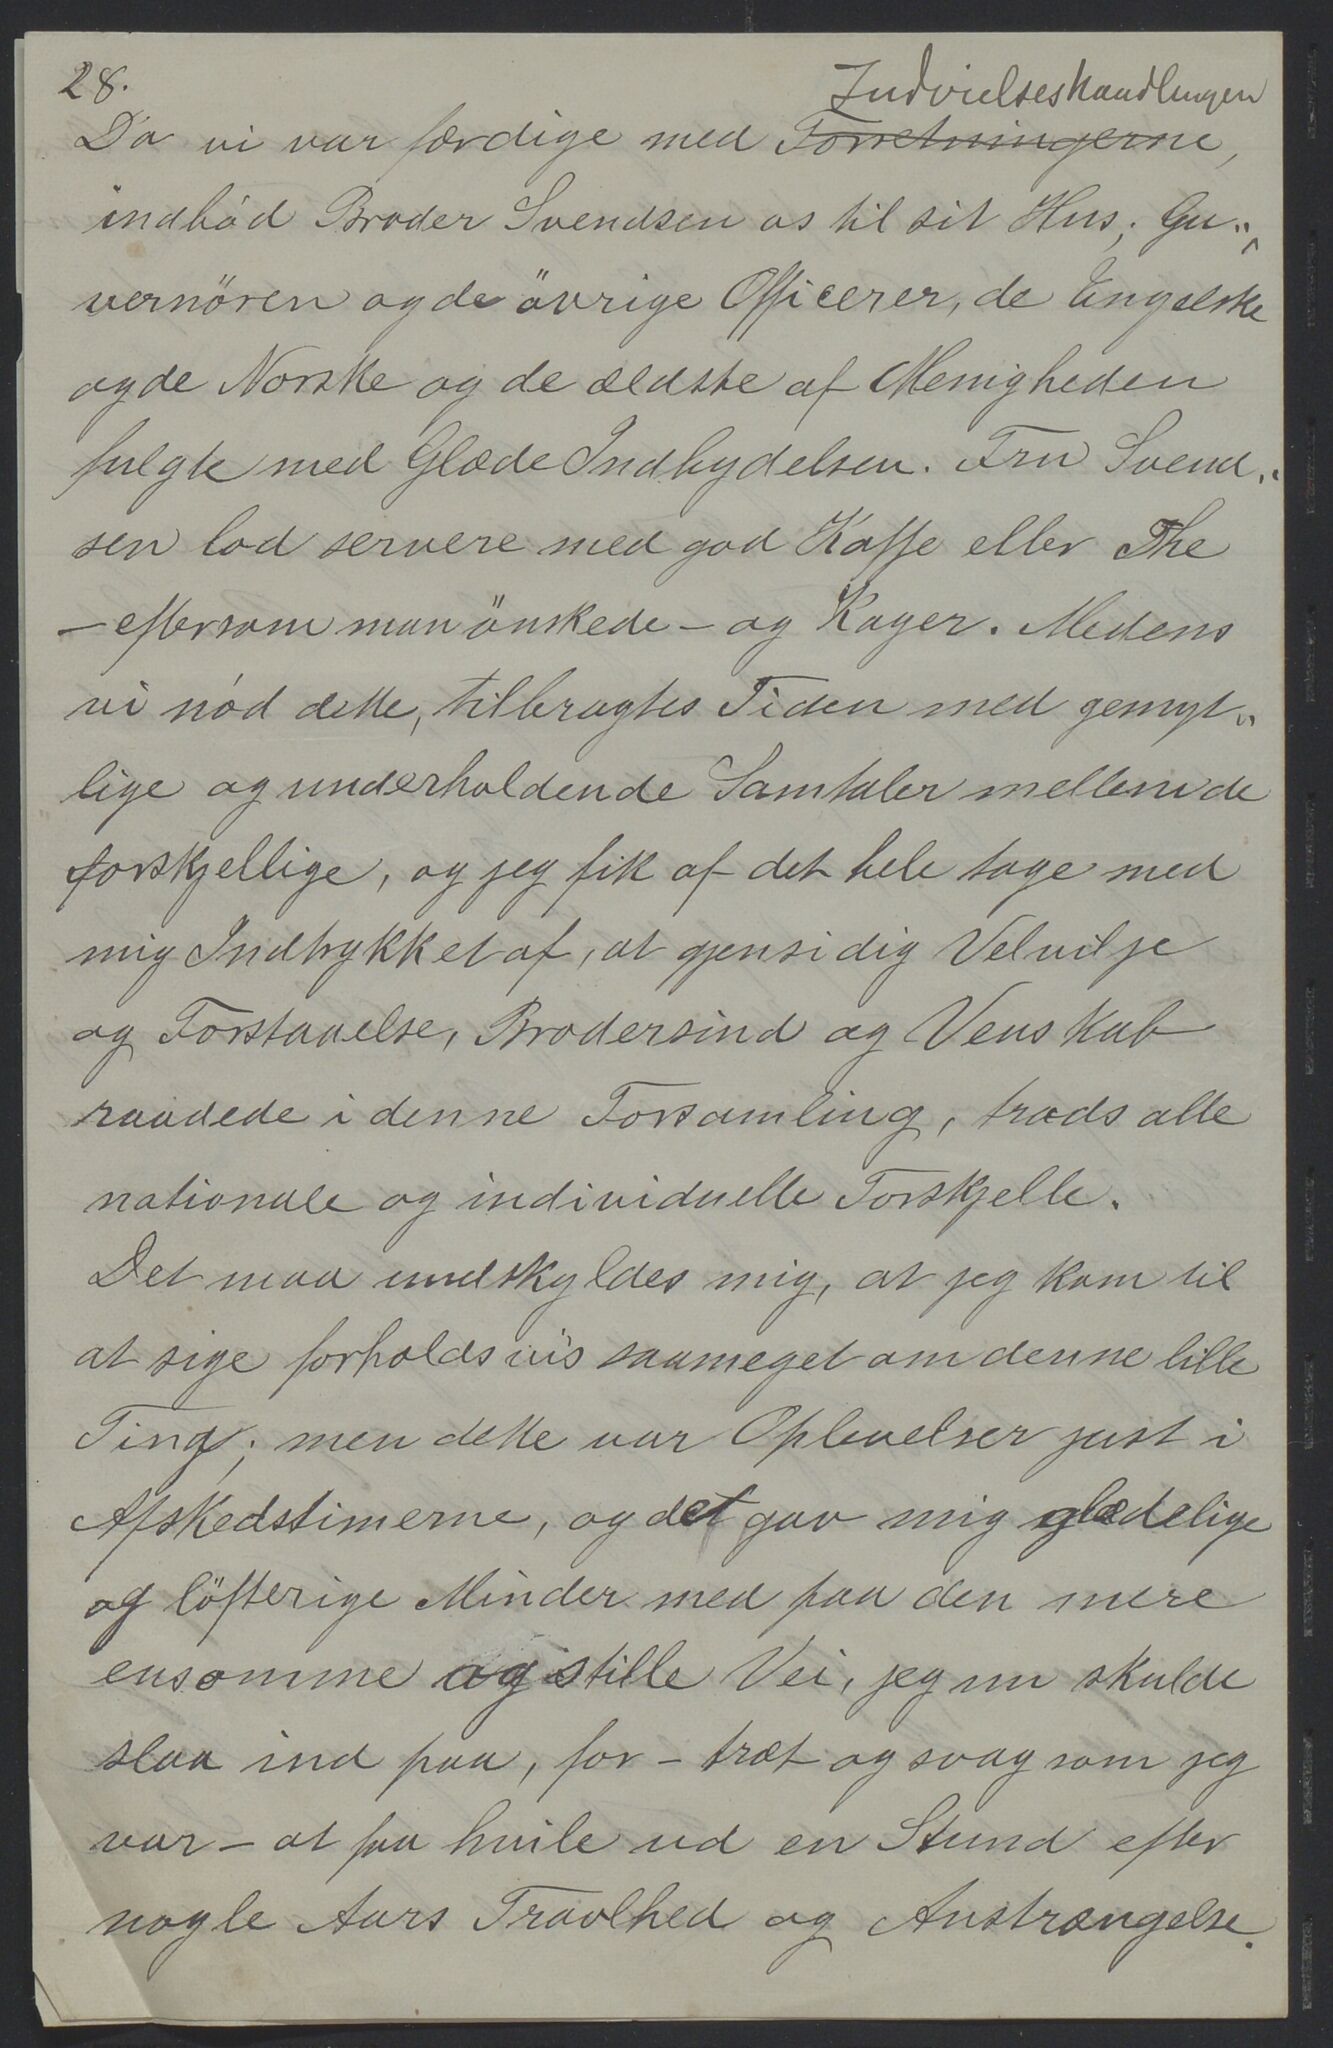 28.
Indvielseshandlingen
Da vi var færdige med Forretningerne,
indbód Broder Svendsen os til sit Hus; Gu„
vernören og de övrige Officerer, de Engelske
og de Norske og de ældste af Menigheden
fulgte med Glæde Indbydelsen. Fru Svend„
sen lod servere med god Kaffe eller The
– eftersom man önskede – og Kager. Medens
vi nód dette, tilbragtes Tiden med gemyt„
lige og underholdende Samtaler mellem de
forskjellige, og jeg fik af det hele tage med
mig Indtrykket af, at gjensidig Velvilje
og Forstaaelse, Brodersind og Venskab
raadede i denne Forsamling, trods alle
nationale og individuelle Forskjelle.
Det maa undskyldes mig, at jeg kom til
at sige forholdsvis saameget om denne lille
Ting; men dette var Oplevelser just i
Afskedstimerne, og det gav mig glædelige
og löfterige Minder med paa den mere
ensomme og stille Vei, jeg nu skulde
slaa ind paa, for – træt og svag som jeg
var – at faa hvile ud en Stund efter
nogle Aars Travlhed og Anstrængelse.